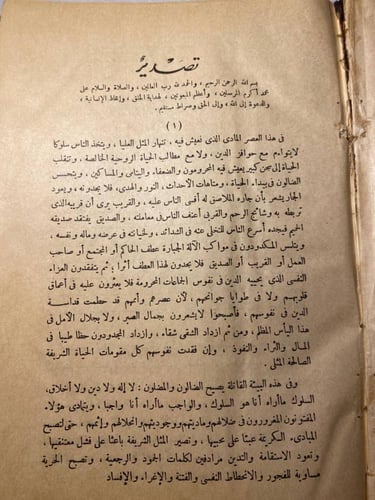 تصدير
بسم الله الرحمن الرحيم ، والحمد لله رب العالمين ، والصلاة والسلام على
محمد أكرم المرسلين ، وأعظم المبعوثين ، لهداية الخلق ، وإيقاظ الإنسانية ،
والدعوة إلى الله ، وإلى الحق وصراط مستقيم .
( ١ )
فى هذا العصر المادى الذى نعيش فيه ، تنهار المثل العليا ، ويتخذ الناس سلوكا
لا يتواءم مع حوافز الدين ، ولا مع مطالب الحياة الروحية الخالصة ، وتنقلب
الحياة إلى سجن كبير يعيش فيه المحرومون والضعفاء واليتامى والمساكين ، ويتحسس
الضالون فى بيداء الحياة ، ومتاهات الأحداث ، النور والهدى ، فلا يجدونه ، ويعود
الجار يشعر بأن جاره الملاصق له أقسى الناس عليه ، والقريب يرى أن قريبه الذى
تربطه به وشائج الرحم والقربى أعنف الناس فى معاملته ، والصديق يفتقد صديقه
الحميم فيجده أسرع الناس للتخلى عنه فى الشدائد ، ولخيانته فى عرضه وماله ونفسه ،
ويتلمس المكدودون فى مواكب الآلة الجبارة عطف الحاكم أو المجتمع أو صاحب
العمل أو القريب أو الصديق فلا يجدون لهذا العطف أثرا ؛ ثم يتفقدون العزاء
النفسى الذى يحييه الدين فى نفوس الجماعات المحرومة فلا يعثرون عليه فى أعماق
قلوبهم ولا فى طوايا جوانحهم ، لأن عصرهم وأمهم قد حطمت قداسة
الدين فى نفوسهم ، فأصبحوا لا يشعرون بجمال الصبر ، ولا بجلال الأمل فى
هذا اليأس المظلم ، ومن ثم ازداد الشقى شقاء ، وازداد المجدودون حظا طيبا فى
المال والثراء والنفوذ ، وإن فقدت نفوسهم كل مقومات الحياة الشريفة
الصالحة المثلى .
وفى هذه البيئة القاتلة يصيح الضالون والمضلون : لا إله ولا دين ولا أخلاق ،
السلوك ما أراه أنا هو السلوك ، والواجب ما أراه أنا واجبا ، ويتمادى هؤلاء
المفتونون المغرورون فى ضلالهم وماديتهم ووجوديتهم وانحلالهم وإثمهم ، حتى لتصبح
المبادىء الكريمة عبئا على محبيها ، وتصير المثل الشريفة باعثا على فشل معتنقيها ،
وتعود الاستقامة والتدين مرادفين لكلمات الجمود والرجعية ، وتصبح الحرية
مساوية للفجور والانحطاط النفسى والفتنة والإغراء والإفساد